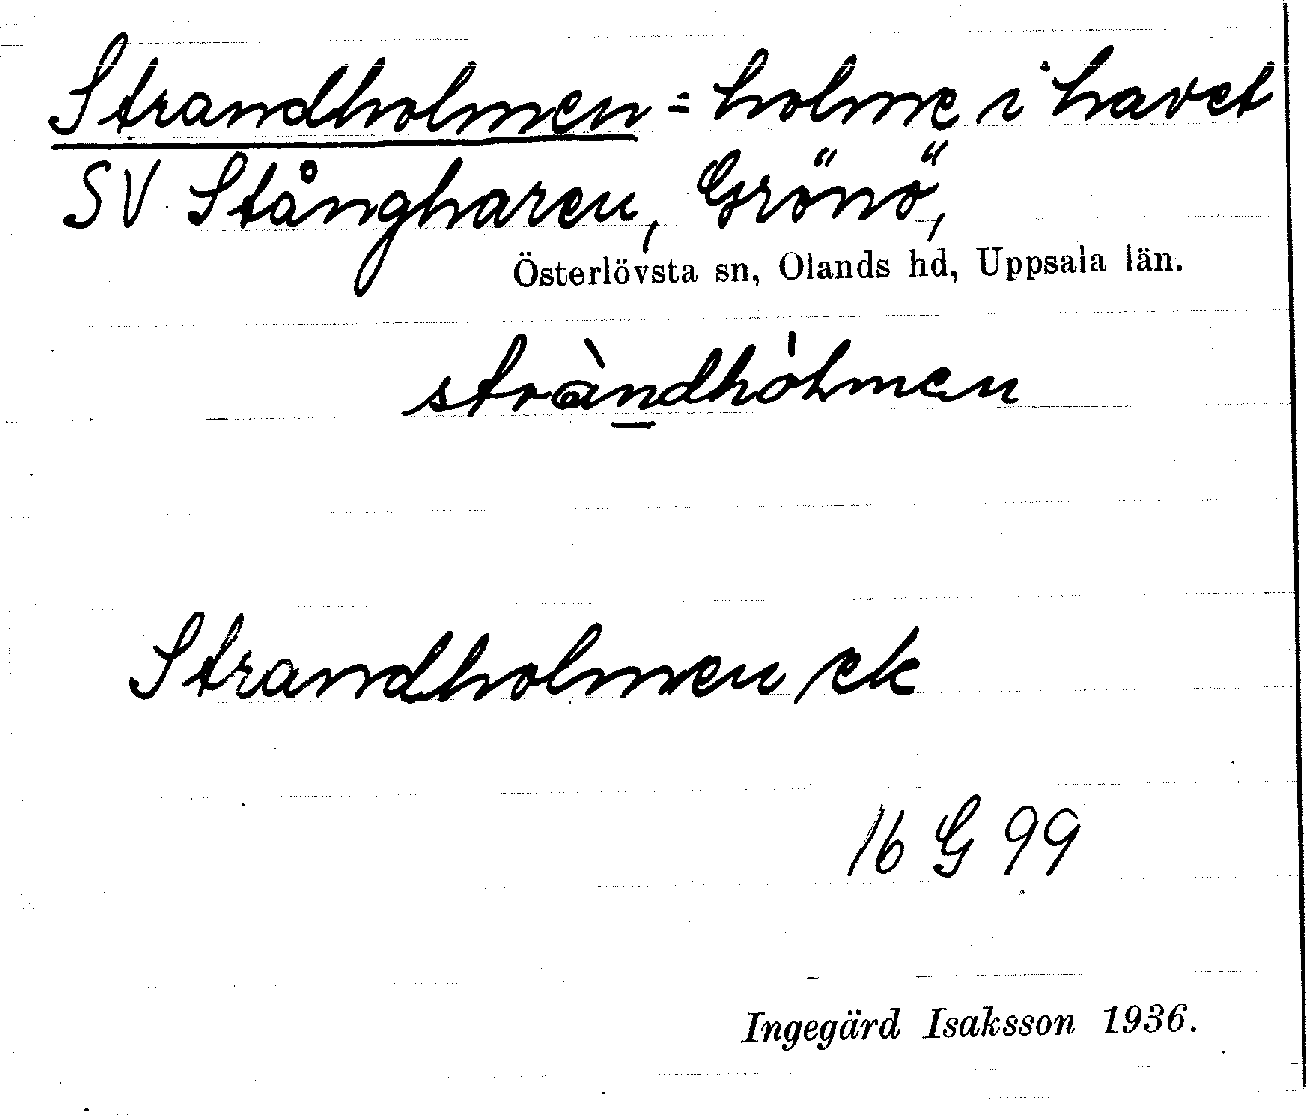 Strandholmen = holme i havet
SV Stångharen, Grönö,
Österlövsta sn, Olands hd, Uppsala län.
stràndhòlmen
Strandholmen ek
16 G 99
Ingegärd Isaksson 1936.